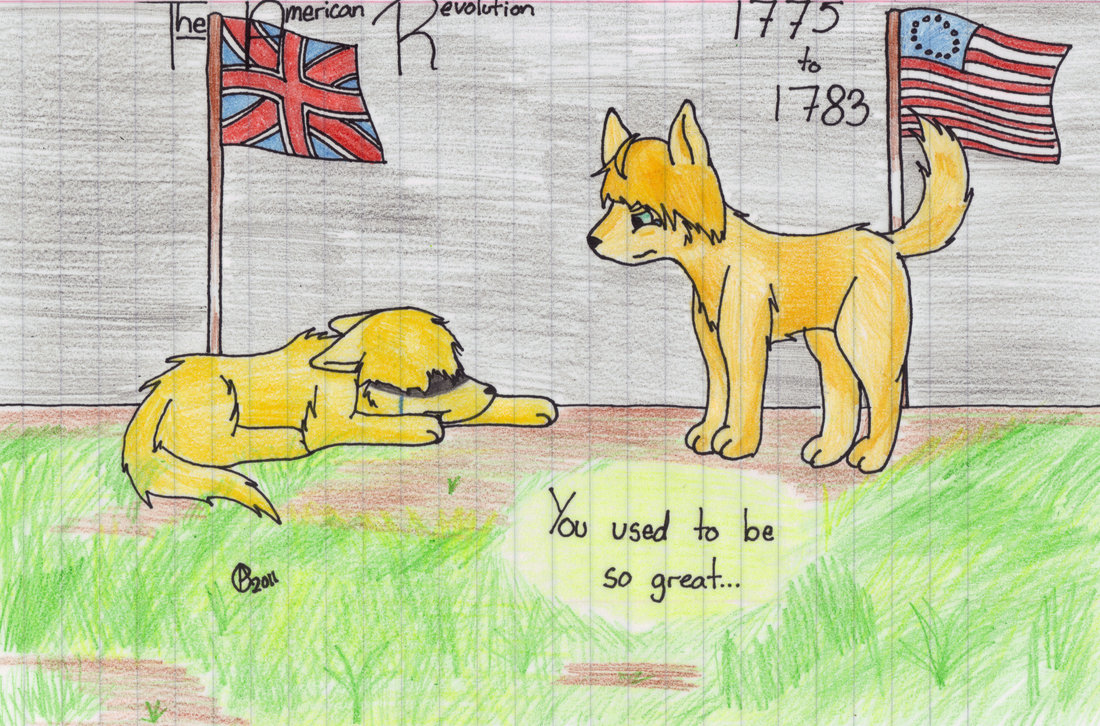 The American Revolution
1775
to
1783
You used to be
so great...
2011